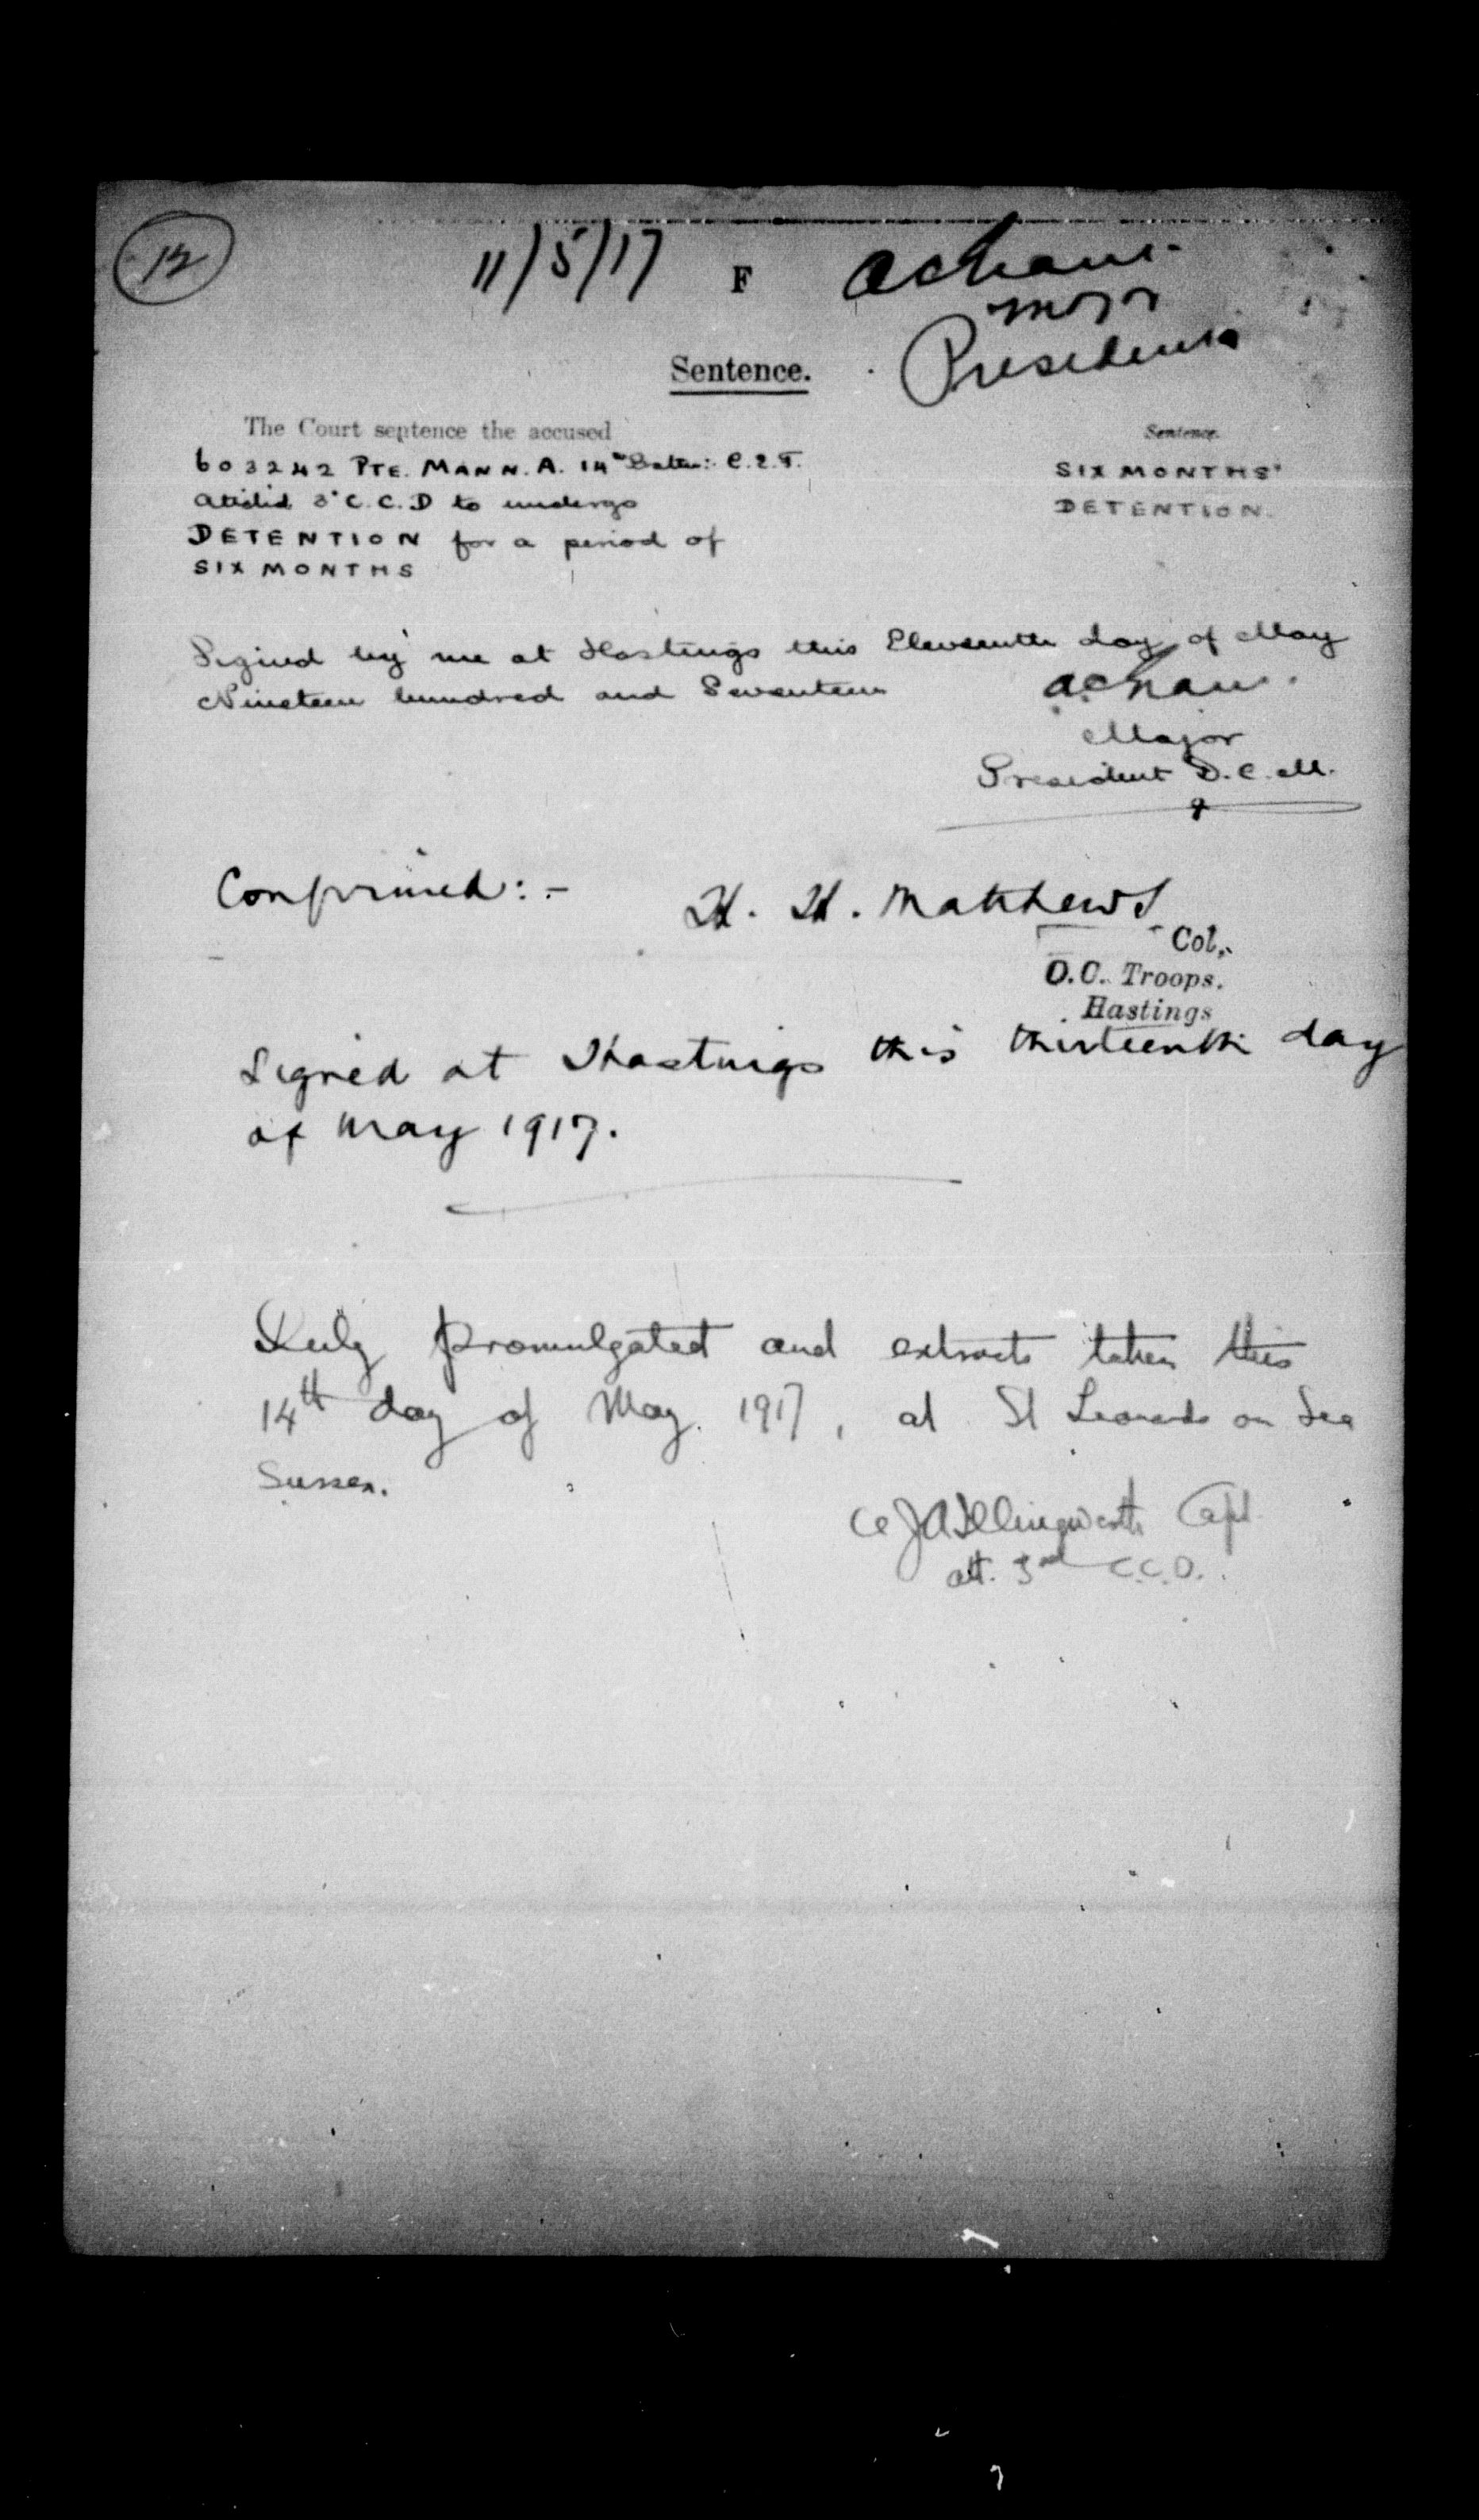 12
11/5/17 F
Major
President
Sentence.
The Court sentence the accused
Sentence.
603242 PTE. MANN. A. 14th Battn: C.E.F.
SIX MONTHS'
DETENTION.
attchd 3rd C.C.D to undergo
DETENTION for a period of
SIX MONTHS
Signed by me at Hastings this Eleventh day of May
Nineteen hundred and Seventeen
Major
President D.C.M.
Confirmed:- H. H. Matthews
Col,
O.C. Troops.
Hastings
Signed at Hastings this thirteenth day
of May 1917.
Duly promulgated and extracts taken this
14th day of May. 1917, at St Leonards on Sea
Sussex.
Illingworth Capt
att. 3rd C.C.D.